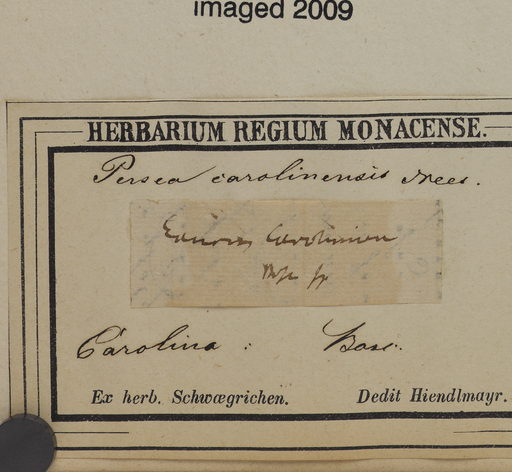 imaged 2009
HERBARIUM REGIUM MONACENSE.
Persea carolinensis Nees.
Carolina : Bosc.
Ex herb. Schwægrichen. Dedit Hiendlmayr.